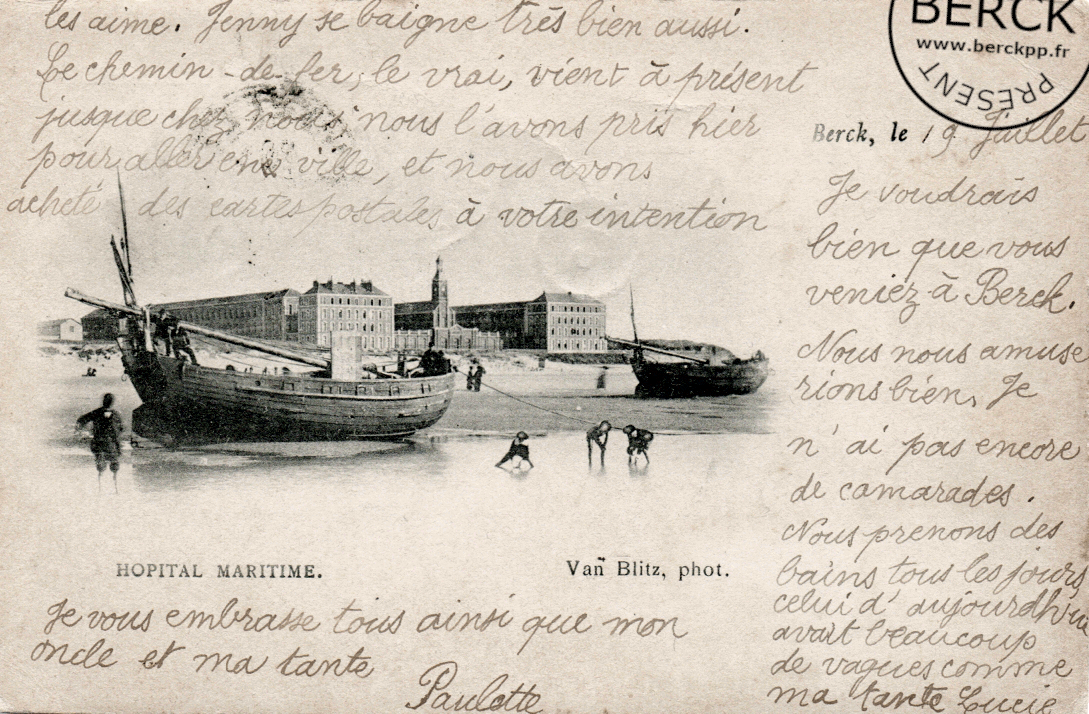 BERCK
www.berckpp.fr
PRÉSENT
Berck, le 19 Juillet
Je voudrais
bien que vous
veniez à Berck.
Nous nous amuse
rions bien, Je
n'ai pas encore
de camarades.
Nous prenons des
bains tous les jours,
celui d'aujourdhui
avait beaucoup
de vagues comme
ma tante Lucie
les aime. Jenny se baigne très bien aussi.
Le chemin-de fer, le vrai, vient à présent
jusque chez nous nous l'avons pris hier
pour aller en ville, et nous avons
acheté des cartes postales à votre intention
HOPITAL MARITIME.
Van Blitz, phot.
Je vous embrasse tous ainsi que mon
oncle et ma tante
Paulette